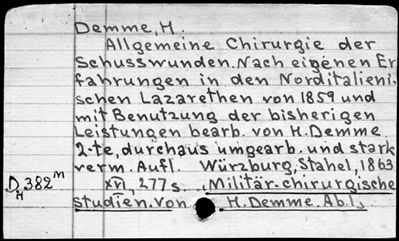 Demme, H.
Allgemeine Chirurgie der
Schusswunden. Nach eigenen Er
fahrungen in den Norditalieni-
schen Lazarethen von 1859 und
mit Benutzung der bisherigen
Leistungen bearb. von H. Demme
2-te, durchaus umgearb. und stark
verm. Aufl. Würzburg, Stahel, 1863
D 382 m
H
XVI, 277 s. „Militär-chirurgische
studien. von H. Demme. Ab. 1„